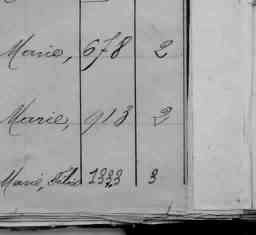 Marie, 678 2
Marie, 913 2
Marie, 1333 3